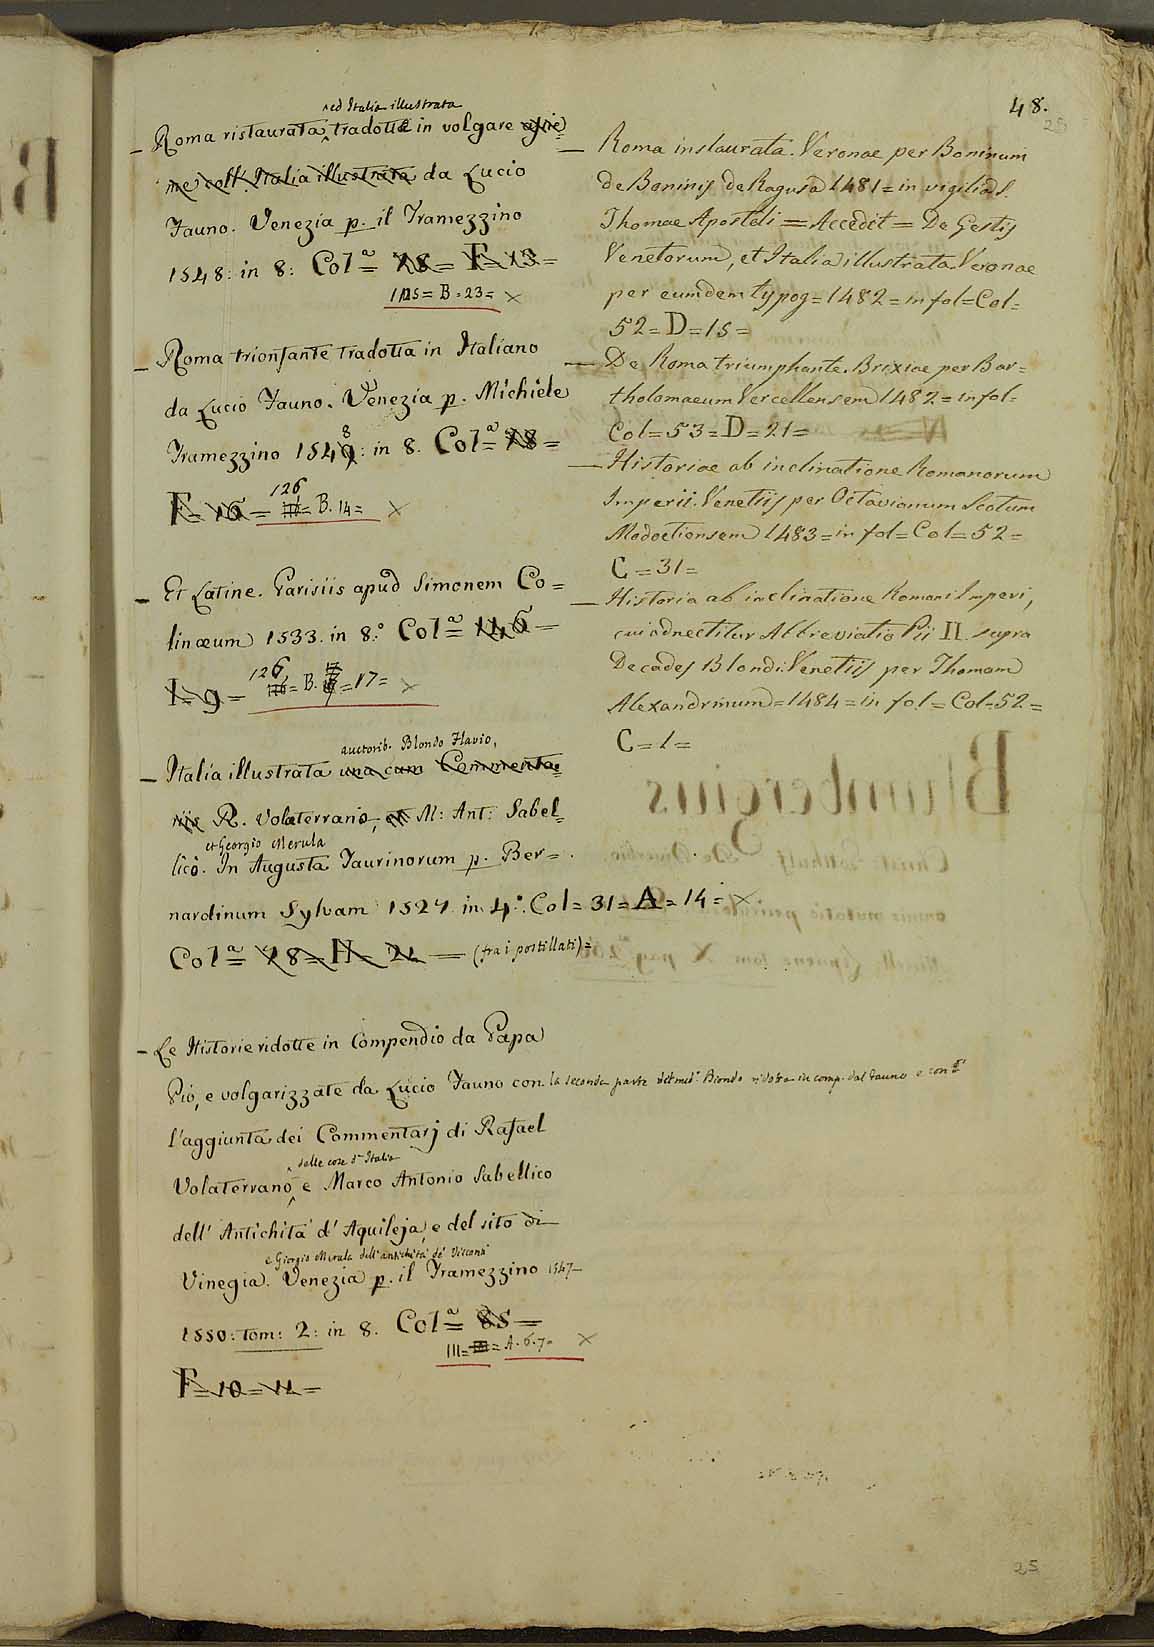 48.
25
ed Italia illustrata
– Roma ristaurata, tradotta in volgare assie=
me coll' Italia illustrata da Lucio
Fauno. Venezia p. il Tramezzino
1548: in 8: Colª= 78= F= 13=
1125= B=23= ×
– Roma trionfante tradotta in Italiano
da Lucio Fauno. Venezia p. Michiele
8
Tramezzino 1549: in 8. Colª= 78=
F= 16= 126 = B. 14= ×
– Et Latine. Parisiis apud Simonem Co=
linæum 1533. in 8.° Colª= 116=
I= 9= 126 = B. =17= ×
auctorib. Blondo Flavio,
– Italia illustrata una cum Commenta=
riis R. Volaterrano, et M: Ant: Sabel=
et Georgio Merula
lico. In Augusta Taurinorum p. Ber=
nardinum Sylvam 1527. in 4.° Col= 31= A= 14= ×
Colª= 78= H= 21 — (fra i postillati)=
– Le Historie ridotte in Compendio da Papa
Pio, e volgarizzate da Lucio Fauno con la seconda parte del med.º Biondo ridotta in comp. dal Fauno e con
l'aggiunta dei Commentarj di Rafael
delle cose d' Italia
Volaterrano e Marco Antonio Sabellico
dell' Antichità d' Aquileja, e del sito di
e Giorgio Merula dell' antichità de' Visconti
Vinegia. Venezia p. il Tramezzino 1547–
1550: tom: 2: in 8. Colª= 85=
111= = A. 6. 7= ×
F= 10= 11=
— Roma instaurata. Veronae per Boninum
de Boninis de Ragusa 1481= in vigilia S.
Thomae Apostoli = Accedit = De Gestis
Venetorum, et Italia illustrata. Veronae
per eumdem typog= 1482= in fol= Col=
52= D= 15=
— De Roma triumphante. Brixiae per Bar=
tholomaeum Vercellensem 1482= in fol=
Col= 53= D= 21=
— Historiae ab inclinatione Romanorum
Imperii. Venetiis per Octavianum Scotum
Modoetiensem 1483= in fol= Col= 52=
C= 31=
— Historia ab inclinatione Romani Imperi,
cui adnectitur Abbreviatio Pii II. supra
Decades Blondi. Venetiis per Thomam
Alexandrinum= 1484= in fol= Col= 52=
C= 1=
25